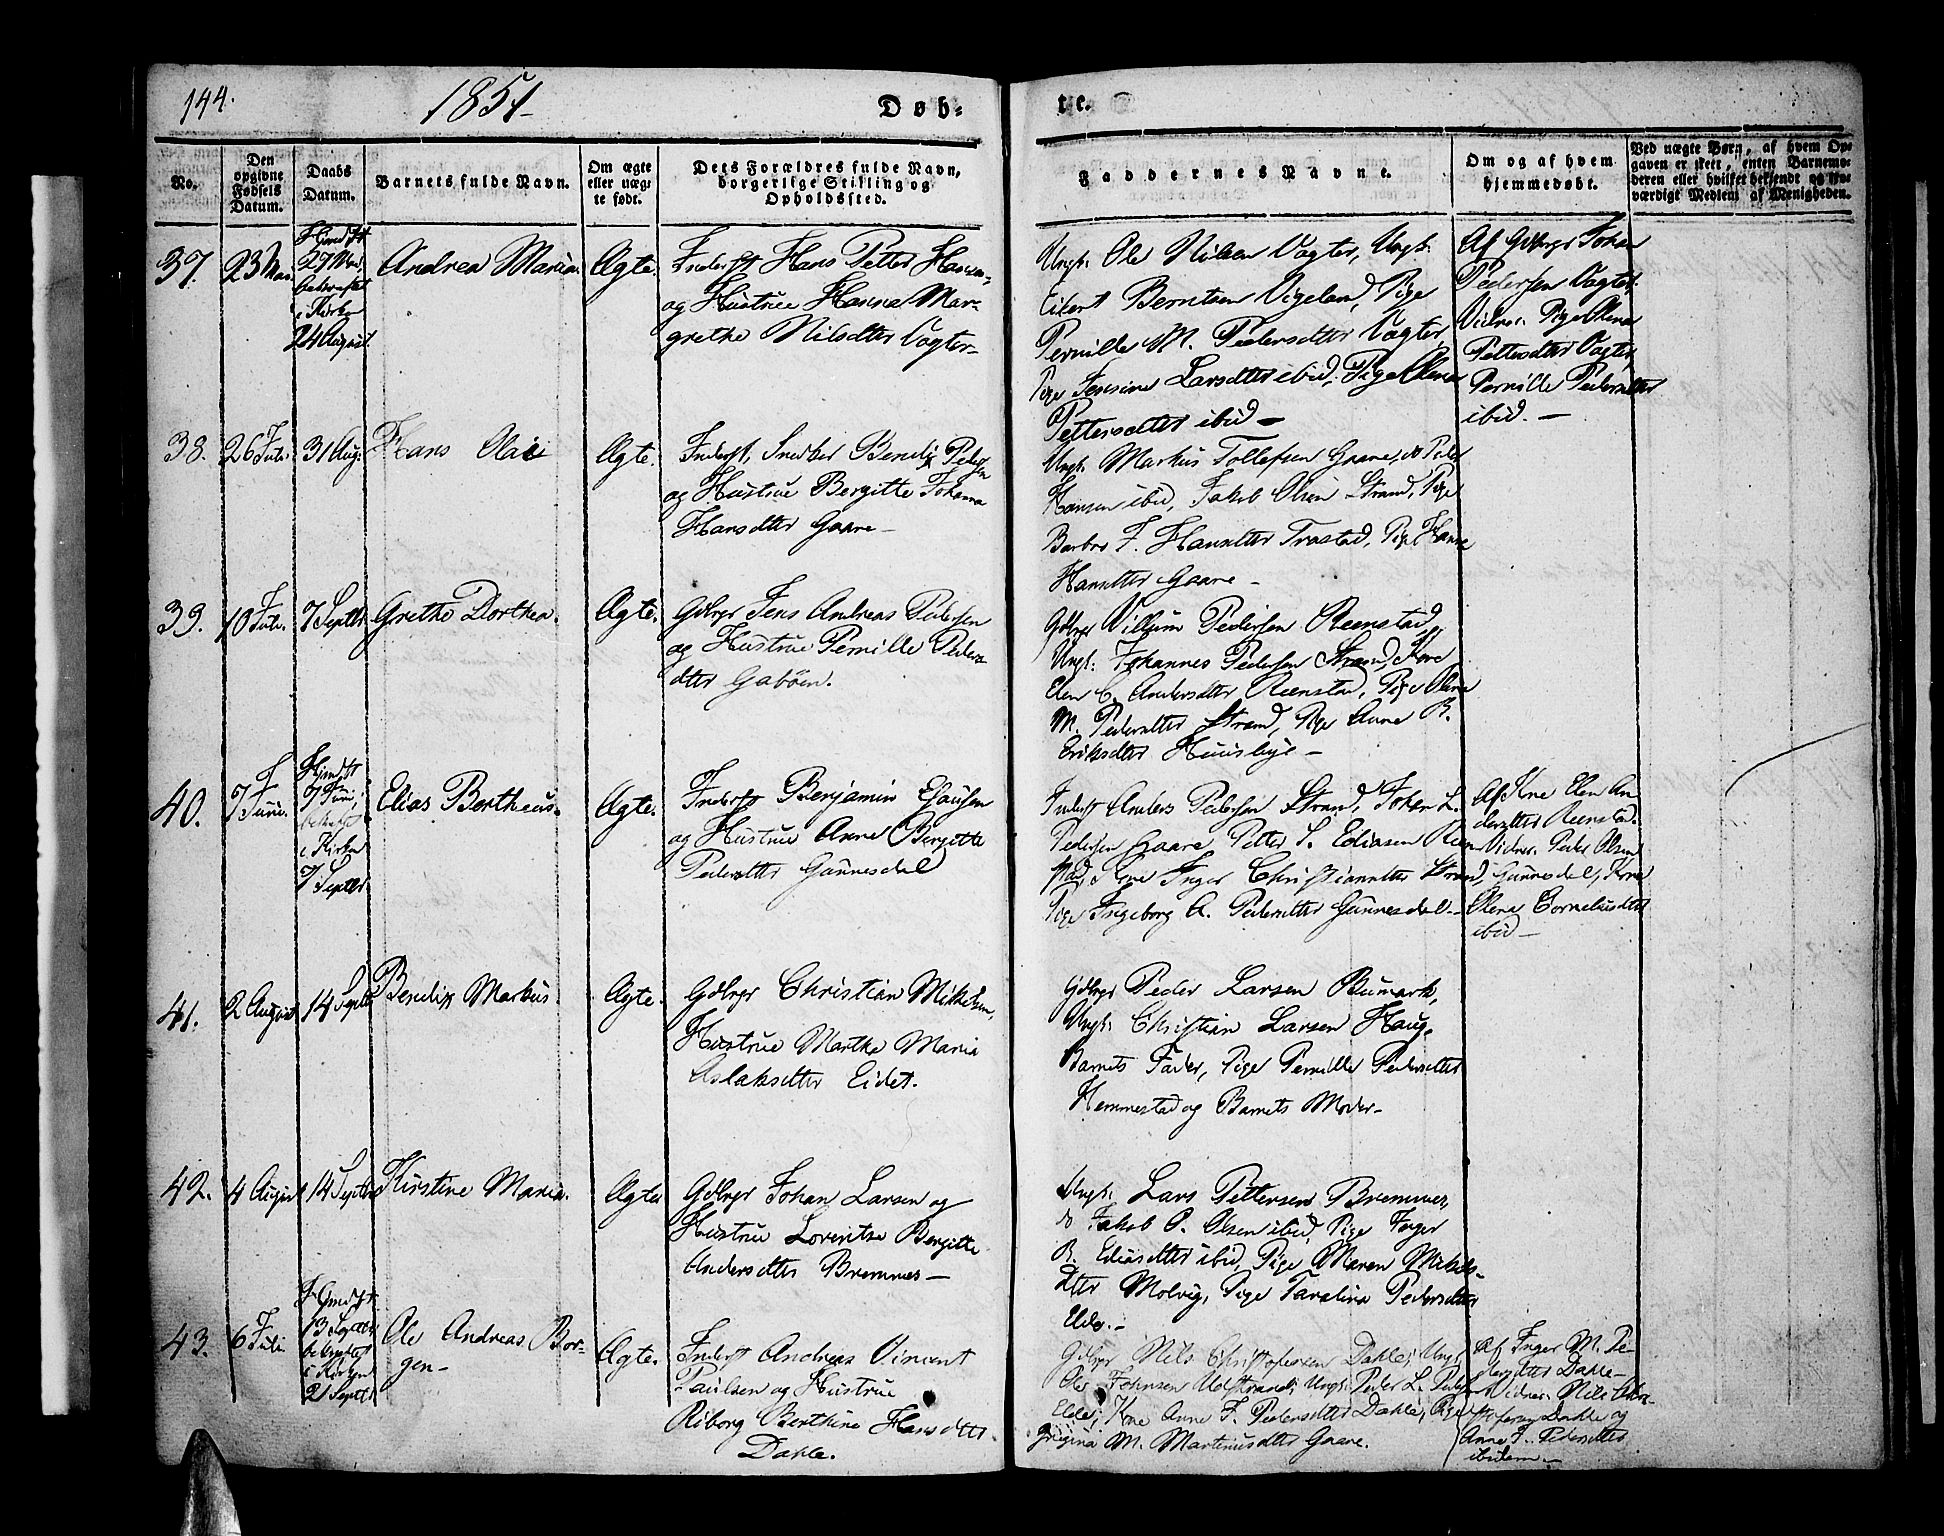 144.
1851
Døb-
te.
No.
Den opgivne Fødsels Datum.
Daabs Datum.
Barnets fulde Navn.
Om ægte eller uægte født.
Dets Forældres fulde Navn, borgerlige Stilling og Opholdssted.
Faddernes Navne.
Om og af hvem hjemmedøbt.
Ved uægte Børn, af hvem Opgaven er skeet, enten Barnemoderen eller hvilket bekjendt og troværdigt Medlem af Menigheden.
37.
23 Mai
Hjmdft
27 Mai,
bekræftet
i Kirken
24 August
Andrea Maria.
Ægte.
Inderst Hans Petter Hansen
og Hustrue Hanna Mar-
grethe Nilsdtter Vagter-
Ungk. Ole Nilsen Vagter, Ungk.
Eilert Berntsen Vigeland, Pige
Pernille M. Pedersdtter Vagter,
Pige Jensine Larsdtter ibid. Pige Olena
Pettersdtter ibid -
Af Gdbrgr Johan
Pedersen Vagter.
Vidner. Pige Olena
Pettersdtter Vagter,
Pernille Pedersdtter
ibid. -
38.
26 Juli.
31 Aug.
Hans Olai
Ægte.
Inderst, Snedker Bendix Pedersen
og Hustrue Bergitte Johanna
Hansdtter Gaare -
Ungk. Markus Tollefsen Gaare, do Peder
Hansen ibid, Jakob Olsen Strand, Pige
Barbro J. Hansdtter Trastad, Pige Hanna
Hansdtter Gaare -
39.
10 Juli.
7 Septbr
Grethe Dorthea.
Ægte.
Gdbrgr Jens Andreas Pedersen
og Hustrue Pernille Peders-
dtter Gabøen.
Gdbrgr Villum Pedersen Reenstad,
Ungk. Johannes Pedersen Strand, Kone
Elen C. Andersdtter Reenstad, Pige Olena
M. Pedersdtter Strand, Pige Anne B.
Eriksdtter Huusbye -
40.
7 Juni.
Hjmdft
7 Juni,
bekræftet
i Kirken
7 Septbr
Elias Bertheus.
Ægte.
Inderst Benjamin Esausen
og Hustrue Anne Bergitte
Pedersdtter Gunnesdal
Inderst Anders Pedersen Strand, Johan L.
Pedersen Gaare Petter S. Ediasen Reen-
stad, Kone Inger Christiansdtter Strand,
Pige Ingeborg A. Pedersdtter Gunnesdal -
Af Kone Elen An-
dersdtter Reenstad.
Vidner. Peder Olsen
Gunnesdal, Kone
Olena Corneliusdtter
ibid -
41.
2 August
14 Septbr
Bendix Markus.
Ægte.
Gdbrgr Christian Mikkelsen,
Hustrue Martha Maria
Aslaksdtter Eidet.
Gdbrgr Peder Larsen Bumark,
Ungk. Christian Larsen Haug,
Barnets Fader, Pige Pernille Pedersdtter
Hemmestad og Barnets Moder -
42.
4 August
14 Septbr
Kirstine Maria.
Ægte
Gdbrgr Johan Larsen og
Hustrue Lorentse Bergitte
Andersdtter Bremnes -
Ungk. Lars Pettersen Bremnes,
do Jakob P. Olsen ibid, Pige Inger
B. Ediasdtter ibid, Pige Maren Mikels-
dtter Molvig, Pige Taraline Pedersdtter
Elde. -
43.
6 Juli
Hjmdft
13 Septbr
bekræftet
i Kirken
21 Septbr
Ole Andreas Bor-
gen -
Ægte.
Inderst Andreas Vincent
Paulsen og Hustrue
Riborg Berthine Hansdtter
Dahle.
Gdbrgr Nils Christofersen Dahle, Ungk.
Ole Johnsen Uolstrand, Ungk. Peder L. Peders
Elde, Kone Anne J. Pedersdtter Dahle, Pige
Grigina M. Martinusdtter Gaare.
Af Inger M. Pe-
dersdtter Dahle -
Vidner. Nils Chri-
stofersen Dahle og
Anne J. Pedersdtter
ibidem. -